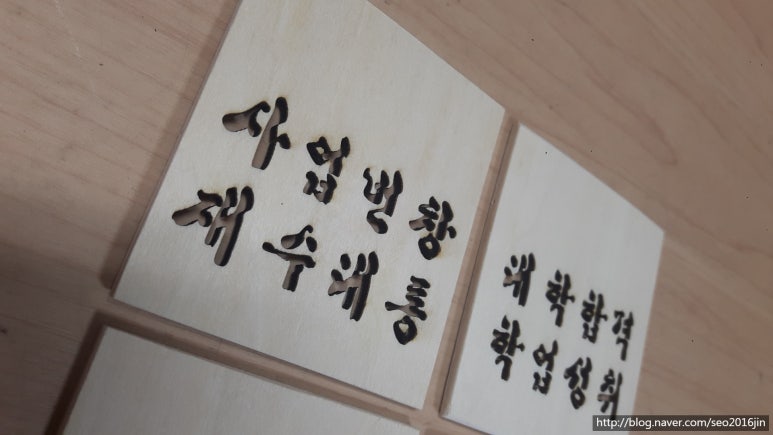 사업번창
재수대통
대학합격
학업성취
http://blog.naver.com/seo2016jin